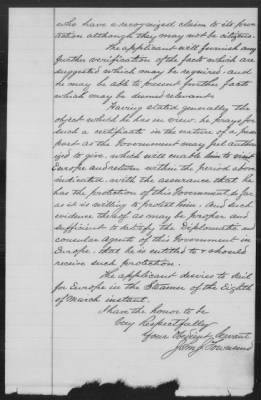 who have a recognized claim to its protection
tection although they may not be citizens.
The applicant will furnish any
further verification of the facts which are
suggested which may be required and
he may be able to present further facts
which may be deemed relevant.
Having stated generally the
object which he has in view, he prays for
such a certificate in the nature of a pass
port as the Government may feel author
ized to give, which will enable him to visit
Europe and return within the period above
indicated, with the assurance that he
has the protection of this Government, so far
as it is willing to protect him. And such
evidence thereof as may be proper and
sufficient to satisfy the Diplomatic and
consular agents of this Government in
Europe, that he is entitled to & should
receive such protection.
The applicant desires to sail
for Europe in the Steamer of the Eighth
of March instant.
I have the honor to be
Very Respectfully
Your Obedient Servant
John J. Townsend